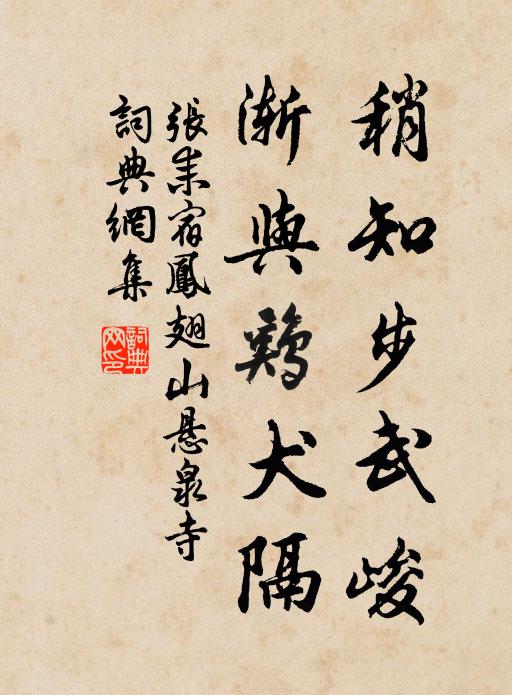 稍知步武峻
漸與鷄犬隔
張耒宿鳳翅山懸泉寺
詞典網集
詞典
网印